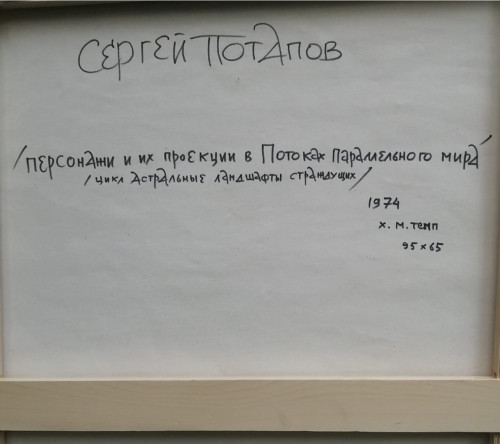 Сергей Потапов
/персонажи и их проекции в Потоках Параллельного мира/
/цикл Астральные ландшафты страждущих/
1974
х. м. темп
95 x 65